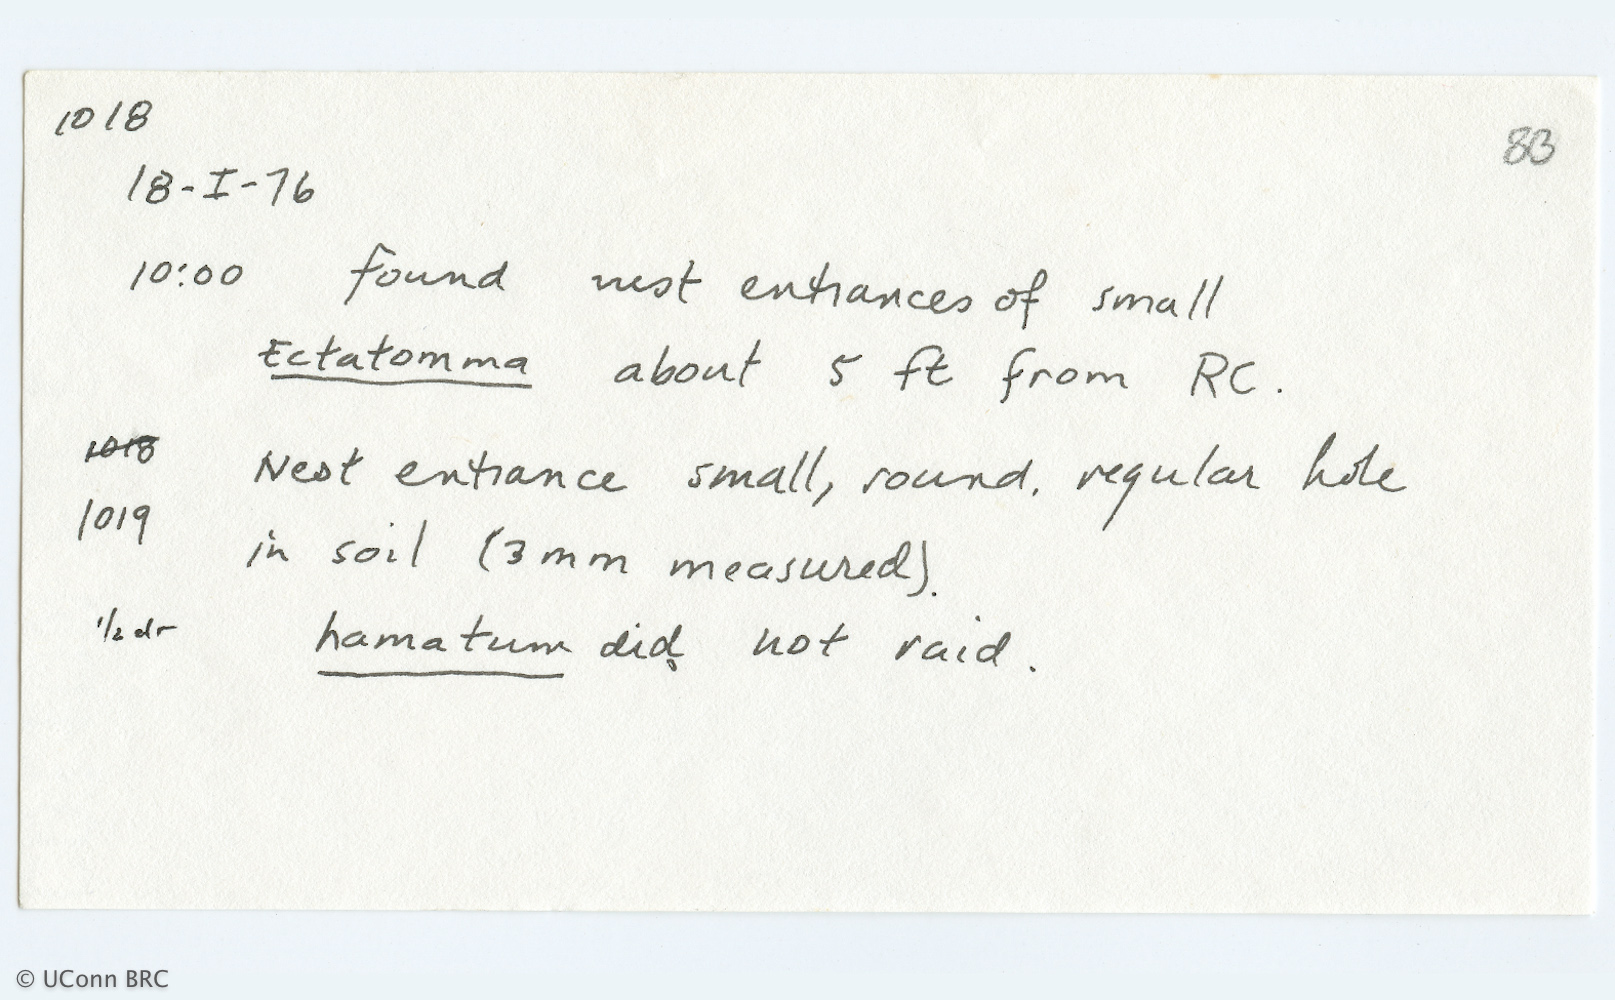 1018
83
18-I-76
10:00 found nest entrances of small
Ectatomma about 5 ft from RC.
1018
Nest entrance small, round, regular hole
1019
in soil (3mm measured).
1/2 dr hamatum did not raid.
© UConn BRC